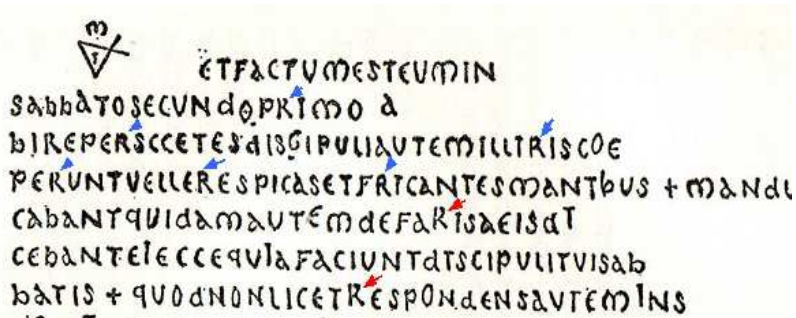 ETFACTUMESTEUMIN
SABBATOSECUNDOPRIMO A
BIREPERSCCETESDISCIPULIAUTEMILLITRISCOE
PERUNTVELLERESPICASETFRICANTESMANTBUS + MANDU
CABANTQUIDAMAUTEMDEFARISAEISDT
CEBANTEIECCEQUIAFACIUNTDTSCIPULITVISAB
BATIS + QUODNONLICETRESPONDENSAUTEMINS